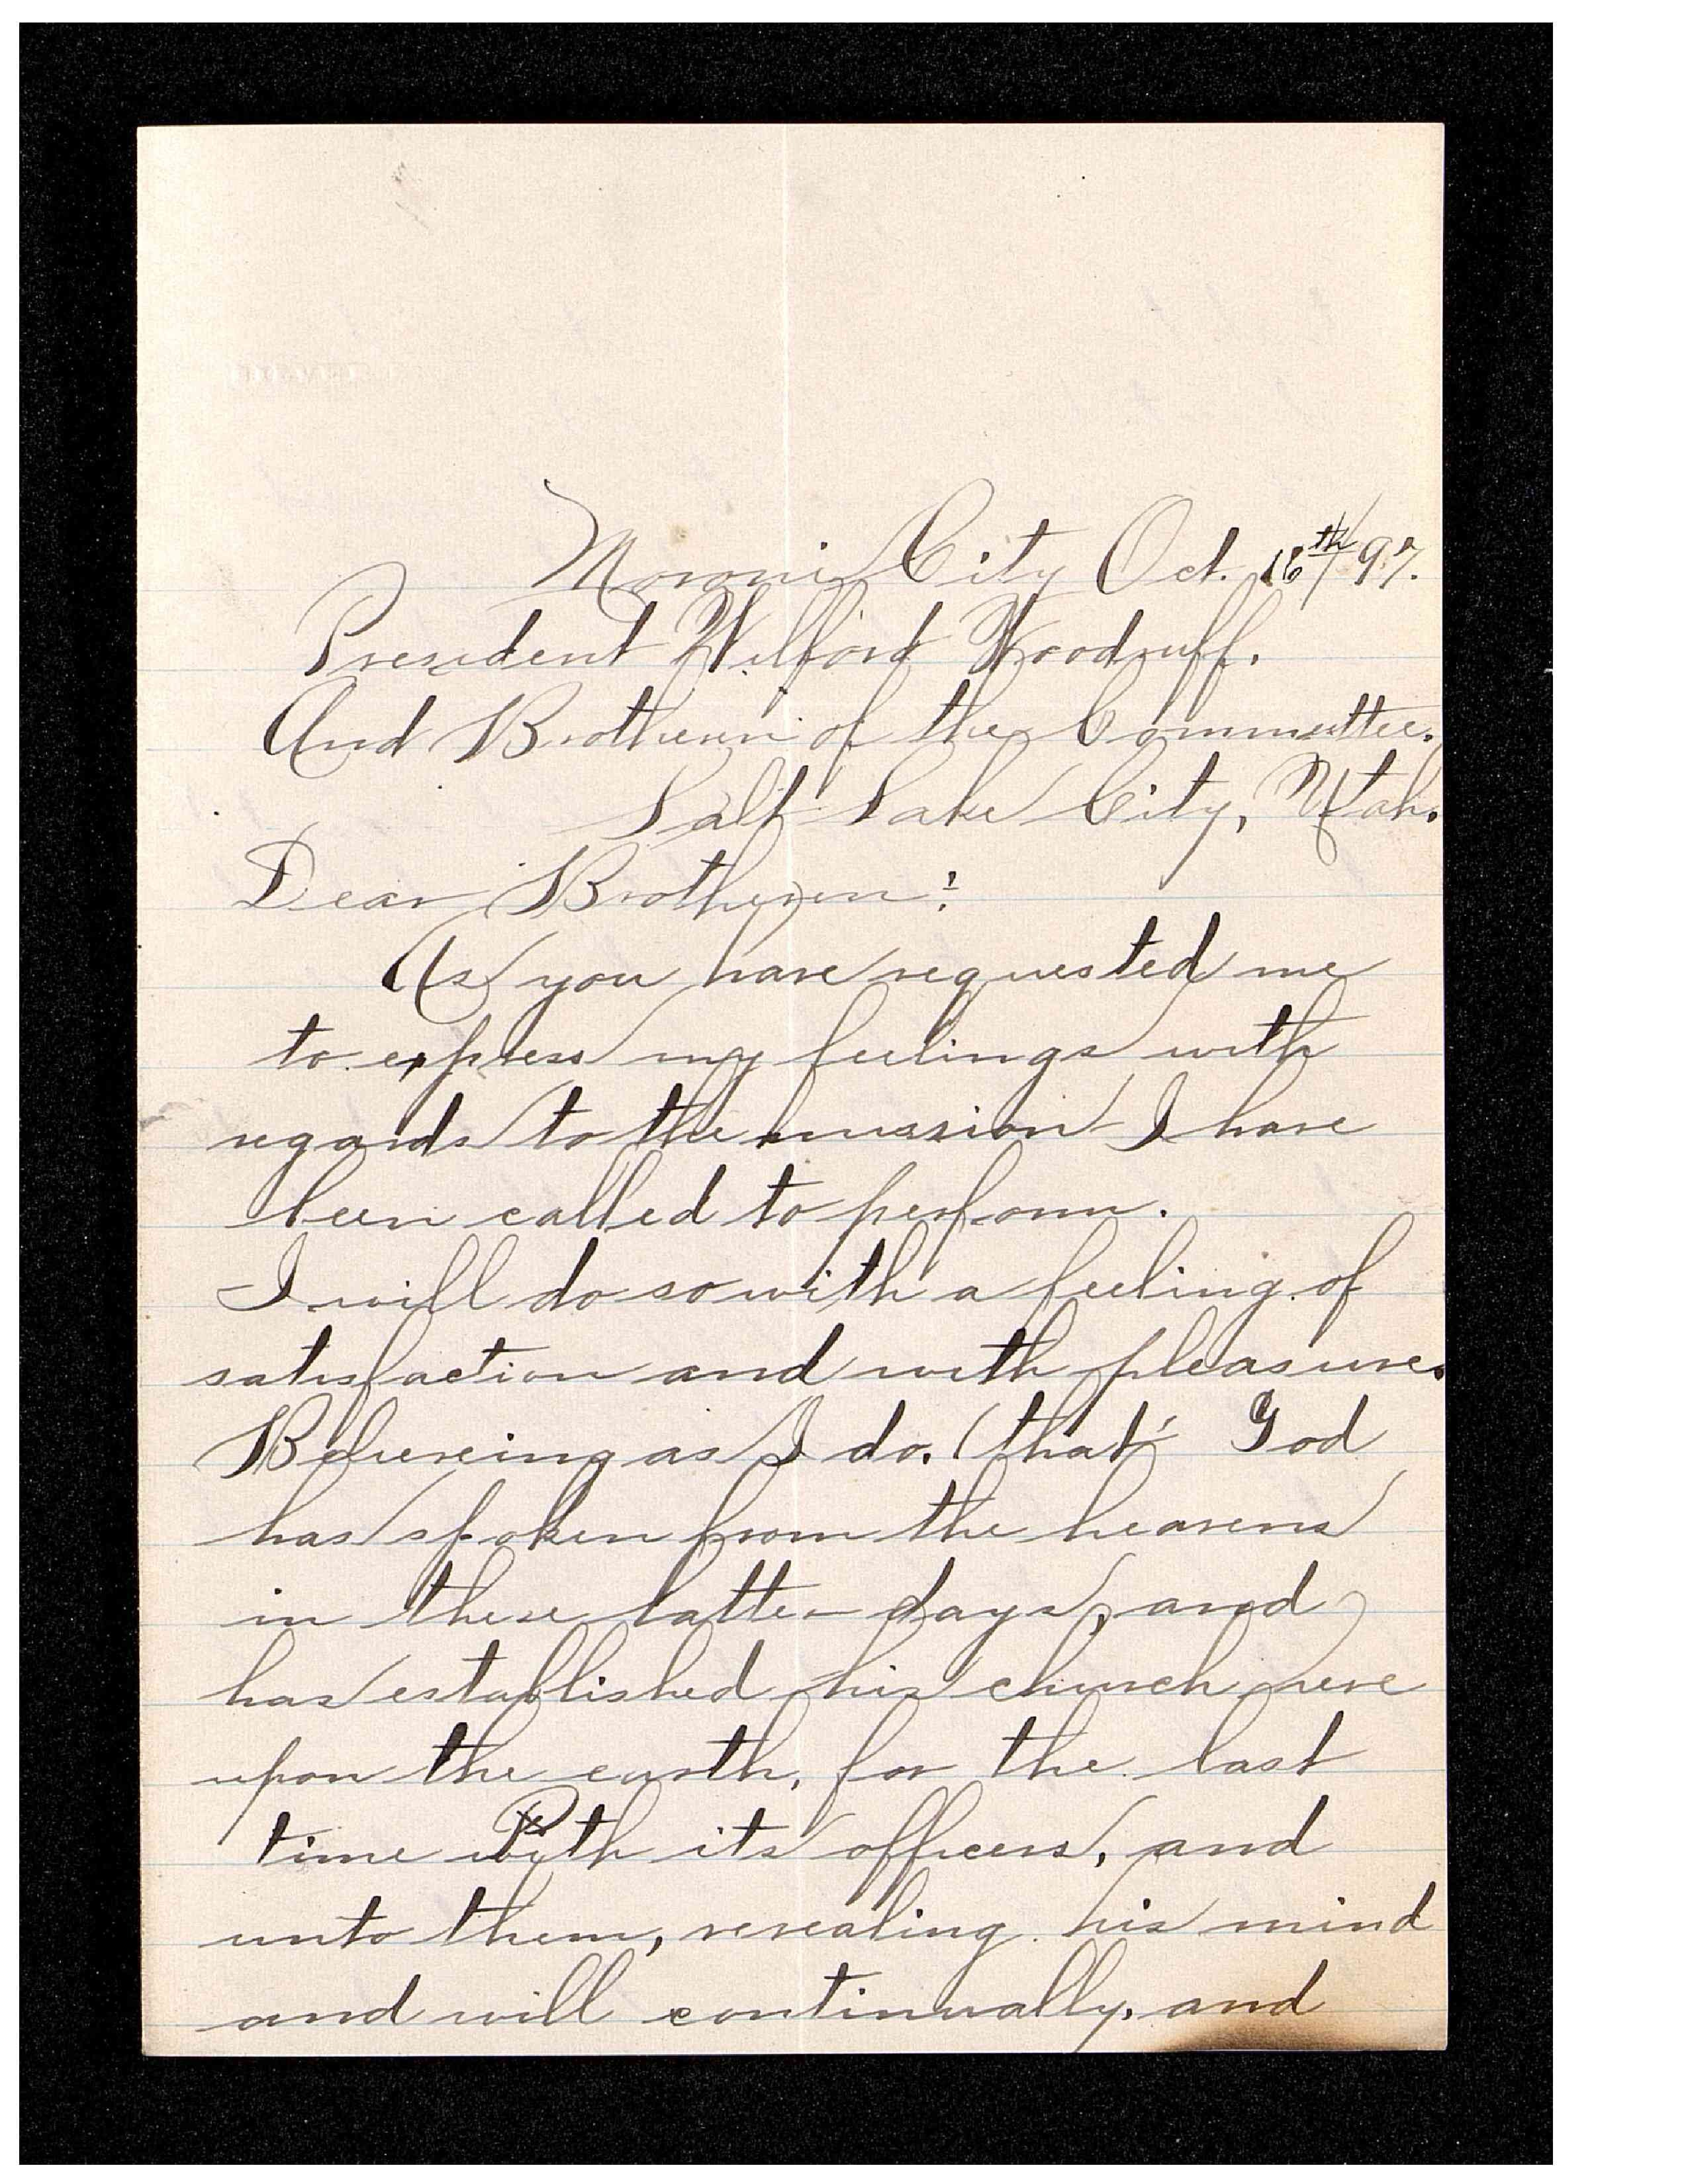 Moroni City Oct. 16th/97.
President Wilford Woodruff.
And Brotheren of the Committee.
Salt Lake City, Utah.
Dear Brotheren:
As you have requested me
to express my feelings with
regards to the mission I have
been called to perform.
I will do so with a feeling of
satisfaction and with pleasure.
Beliveing as I do. that God
has spoken from the heavens
in these latter days, and
has established his church here
upon the earth, for the last
time with its officers, and
unto them, revealing his mind
and will continually, and